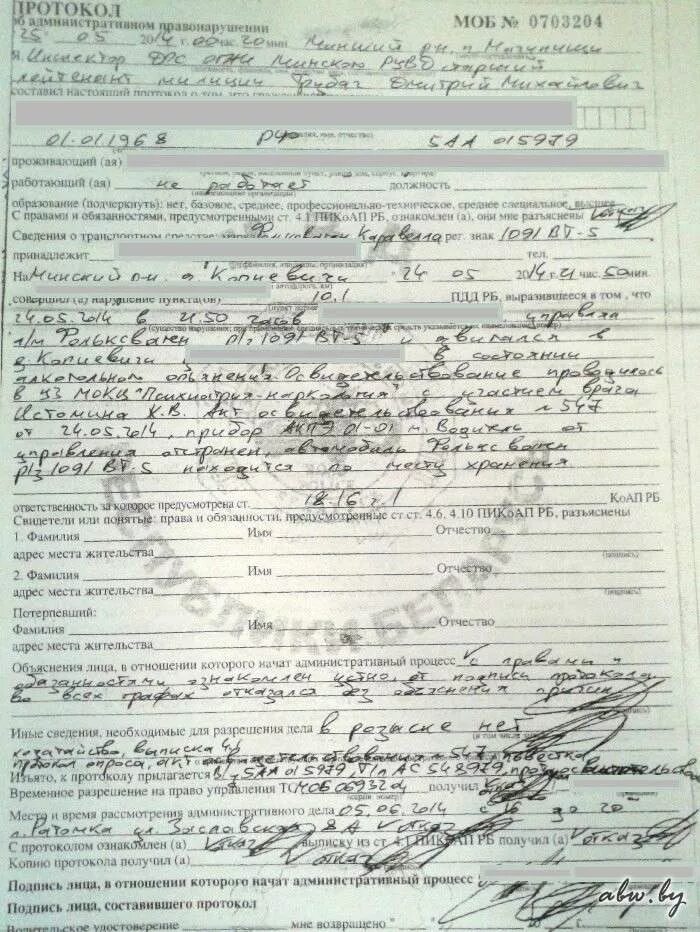 ПРОТОКОЛ
об административном правонарушении МОБ № 0703204
25 05 2014 00 час. 20 мин. Минский рн. п. Мачулищи
Я, Инспектор ДПС ОГАИ Минского РУВД старший
лейтенант милиции Дмитрий Михайлович
составил настоящий протокол о том, что
01-01.1968 РФ 5АА 015979
проживающий (ая)
работающий (ая) не работает должность
образование (подчеркнуть): нет, базовое, среднее, профессионально-техническое, среднее специальное, высшее
С правами и обязанностями, предусмотренными ст. 4.1 ПИКоАП РБ, ознакомлен (а), они мне разъяснены
Сведения о транспортном средстве: Каравелла рег. знак 1091 ВТ-5
принадлежит тел.
На Минский р-н. д. Копиевичи " 24 05 2014 г. 21 час. 50 мин.
совершил (а) нарушение пункта(ов) 10.1 ПДД РБ, выразившееся в том, что
24.05.2014 в 21.50 часов управляя
а/м Фольксваген р/з 1091 ВТ-5 и двигался в
д. Копиевичи в состоянии
алкогольного опьянения. Освидетельствование проводилось
в УЗ МОКЦ "Психиатрия-наркология" с участием врача
Истомина К.В. Акт освидетельствования №547
от 24.05.2014, прибор АКПЭ 01-01 м. Водитель от
управления отстранен, автомобиль Фольксваген
р/з 1091 ВТ-5 находится по месту хранения
ответственность за которое предусмотрена ст. 18.16 ч.1 КоАП РБ
Свидетели или понятые: права и обязанности, предусмотренные ст.ст. 4.6, 4.10 ПИКоАП РБ, разъяснены
1. Фамилия Имя Отчество
адрес места жительства (подпись)
2. Фамилия Имя Отчество
адрес места жительства (подпись)
Потерпевший:
Фамилия Имя Отчество
адрес места жительства
Объяснения лица, в отношении которого начат административный процесс с правами и
обязанностями ознакомлен устно от подписи протокола
во всех графах отказался без объяснения причин
Иные сведения, необходимые для разрешения дела в розыске нет
ходатайство, выписка 4.1,
протокол опроса, акт освидетельствования №547, повестка
Изъято, к протоколу прилагается В/у 5АА 015979, Т/п АС 548979,
Временное разрешение на право управления ТС МОБ 069324 получил
Место и время рассмотрения административного дела 05.06.2014 с 16 до 20
п. Ратомка ул. Заславская 8А отказ
С протоколом ознакомлен (а) отказ выписку из ст. 4.1 ПИКоАП РБ получил (а) отказ
Копию протокола получил (а) отказ
Подпись лица, в отношении которого начат административный процесс
Подпись лица, составившего протокол
Водительское удостоверение мне возвращено " г.
РЕСПУБЛИКИ БЕЛАРУСЬ
abw.by